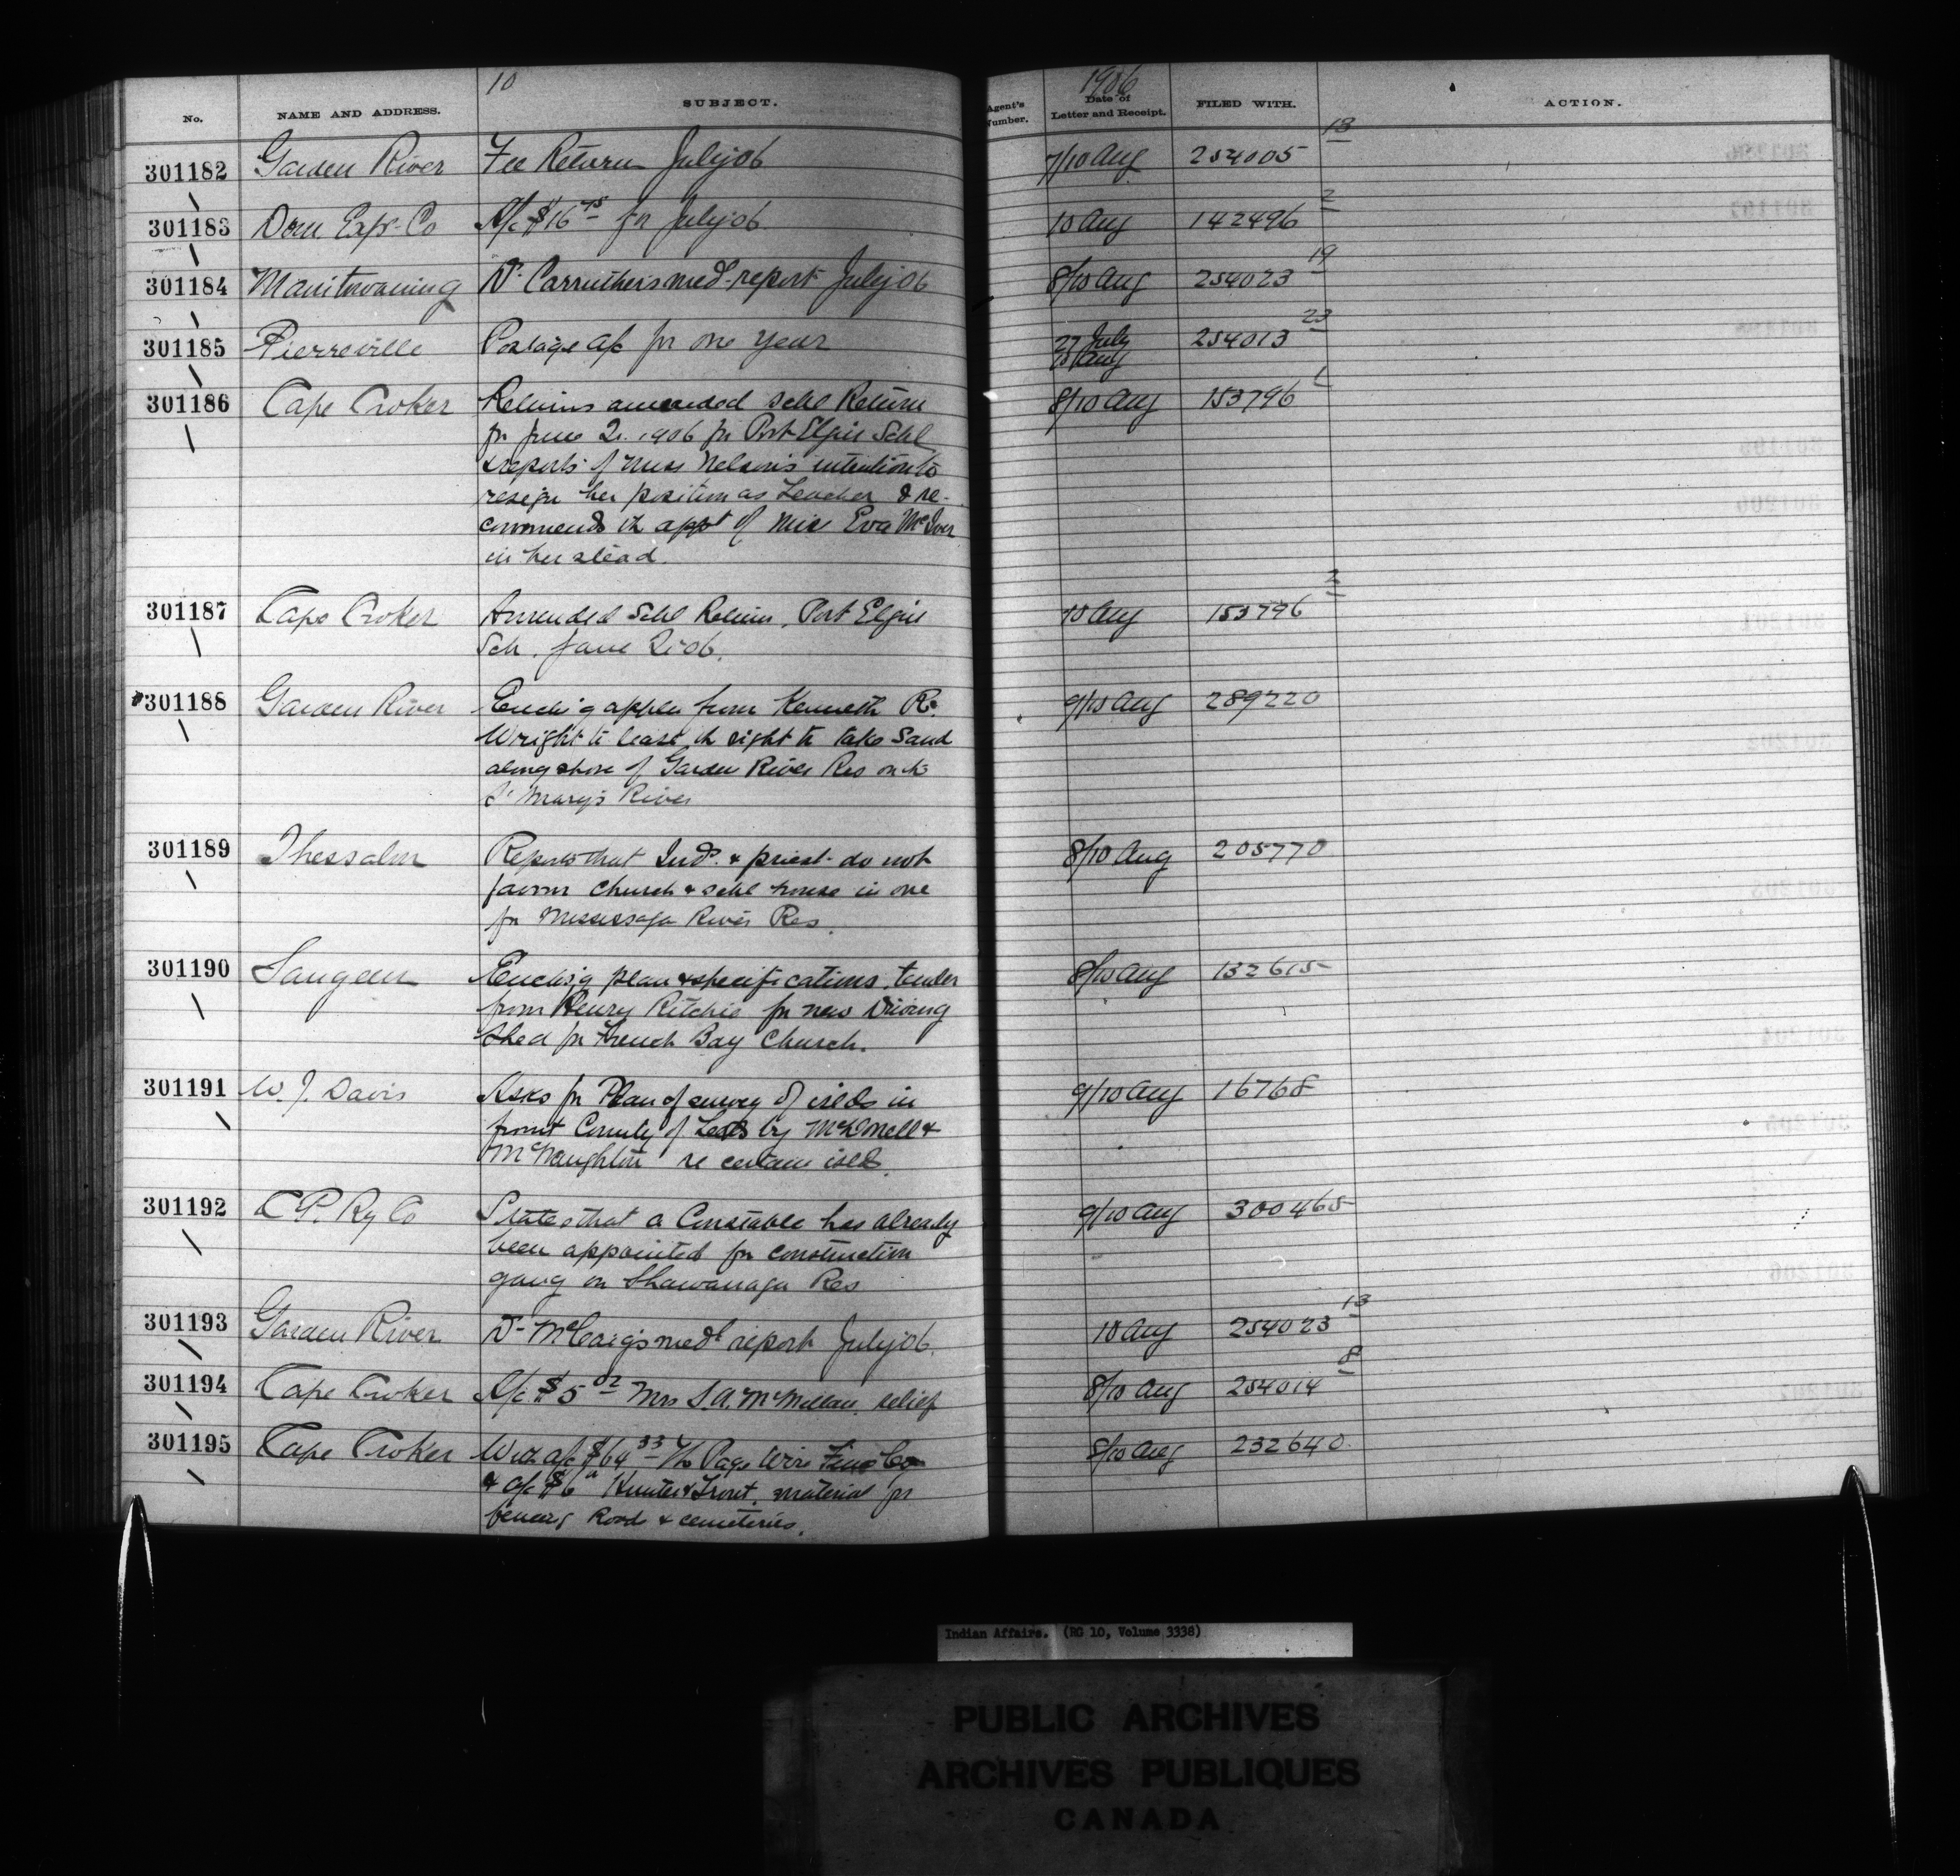 10
1906
No. NAME AND ADDRESS. SUBJECT. Agent's Number. Date of Letter and Receipt. FILED WITH. ACTION.
301182 Garden River Fee Return July 06 7/10 Aug 254005 18
301183 Dom. Expr. Co A/c $16 75 for July 06 10 Aug 142496 2
301184 Manitowaning Dr. Carruthers med. report July 06 8/10 Aug 254023 19
301185 Pierreville Postage a/c for one year 27 July 10 Aug 254013 23
301186 Cape Croker Returns amended Schl Return 8/10 Aug 153796 1
for June Qr. 1906 for Port Elgin Schl
& reports of Miss Nelson's intention to
resign her position as Teacher & re-
commends th appt of Miss Eva McIver
in her stead.
301187 Cape Croker Amended Schl Return, Port Elgin 10 Aug 153796 2
Sch. June Qr 06.
301188 Garden River Encls'g applen from Kenneth R. 9/10 Aug 289220
Wright to lease th right to take Sand
along shore of Garden River Res on th
St Mary's River
301189 Thessalon Reports that Inds. & priest do not 8/10 Aug 205770
favour Church & schl house in one
for Mississaga River Res.
301190 Saugeen Encls'g plan & specifications, tender 8/10 Aug 132615
from Henry Ritchie for new Driving
Shed for French Bay Church.
301191 W. J. Davis Asks for Plan of survey of islds in 9/10 Aug 16768
front County of Leeds by McDonell &
McNaughton re certain islds.
301192 C.P. Ry Co States that a Constable has already 9/10 Aug 300465
been appointed for construction
gang on Shawanaga Res
301193 Garden River Dr. McCaig's medl report July 06. 10 Aug 254023 13
301194 Cape Croker A/c $5 02 Mrs S.A. McMillan, relief 8/10 Aug 254014 8
301195 Cape Croker With a/c $64 33 Th Page Wire Fence Co 8/10 Aug 232640
& a/c $6 Hunter & Trout, material for
fencing Roads & cemeteries.
Indian Affairs. (RG 10, Volume 3338)
PUBLIC ARCHIVES
ARCHIVES PUBLIQUES
CANADA